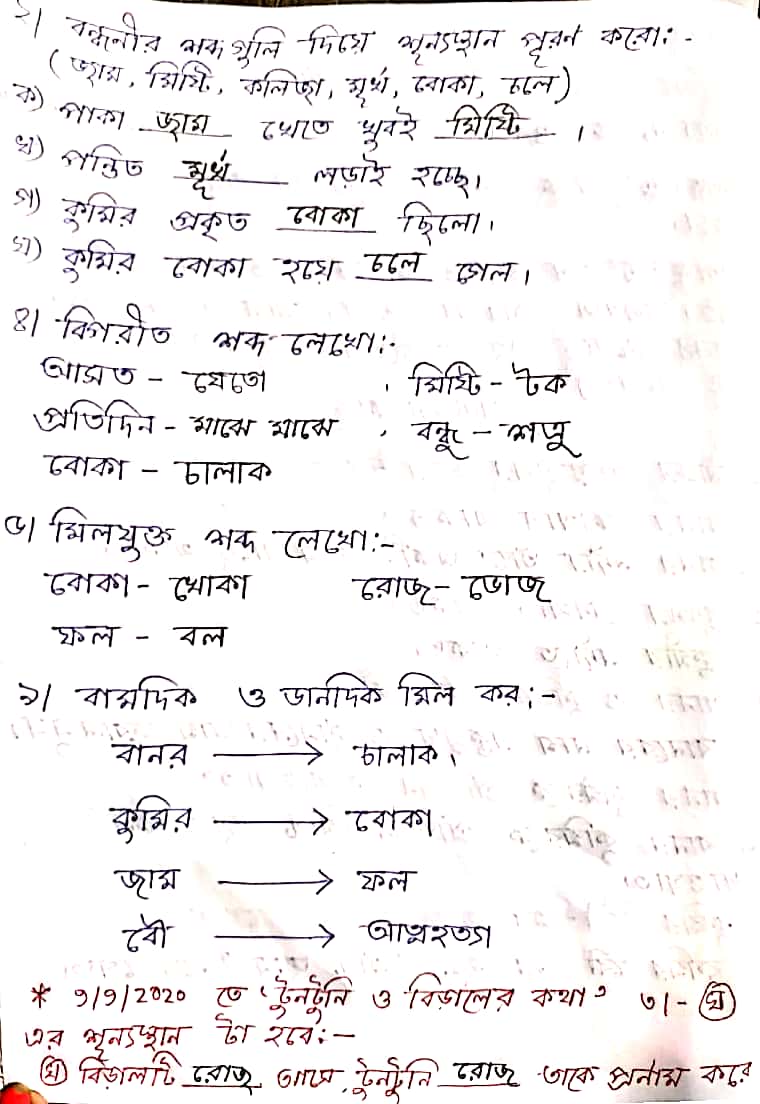 ২। বন্ধনীর শব্দগুলি দিয়ে শূন্যস্থান পূরণ করো:-
(জাম, মিষ্টি, কলিজা, মূর্খ, বোকা, চলে)
ক) পাকা জাম খেতে খুবই মিষ্টি ।
খ) পন্ডিত মূর্খ লড়াই হচ্ছে।
গ) কুমির প্রকৃত বোকা ছিলো।
ঘ) কুমির বোকা হয়ে চলে গেল।
৪। বিপরীত শব্দ লেখো:-
আসত - যেতো , মিষ্টি - টক
প্রতিদিন - মাঝে মাঝে , বন্ধু - শত্রু
বোকা - চালাক
৬। মিলযুক্ত শব্দ লেখো:-
বোকা - খোকা রোজ - ভোজ
ফল - বল
৯। বামদিক ও ডানদিক মিল কর:-
বানর → চালাক।
কুমির → বোকা
জাম → ফল
বৌ → আত্মহত্যা
* ৭/৭/2020 তে 'টুনটুনি ও বিড়ালের কথা' ৩।- (ঘ)
এর শূন্যস্থান টা হবে:-
(ঘ) বিড়ালটি রোজ আসে, টুনটুনি রোজ তাকে প্রনাম করে